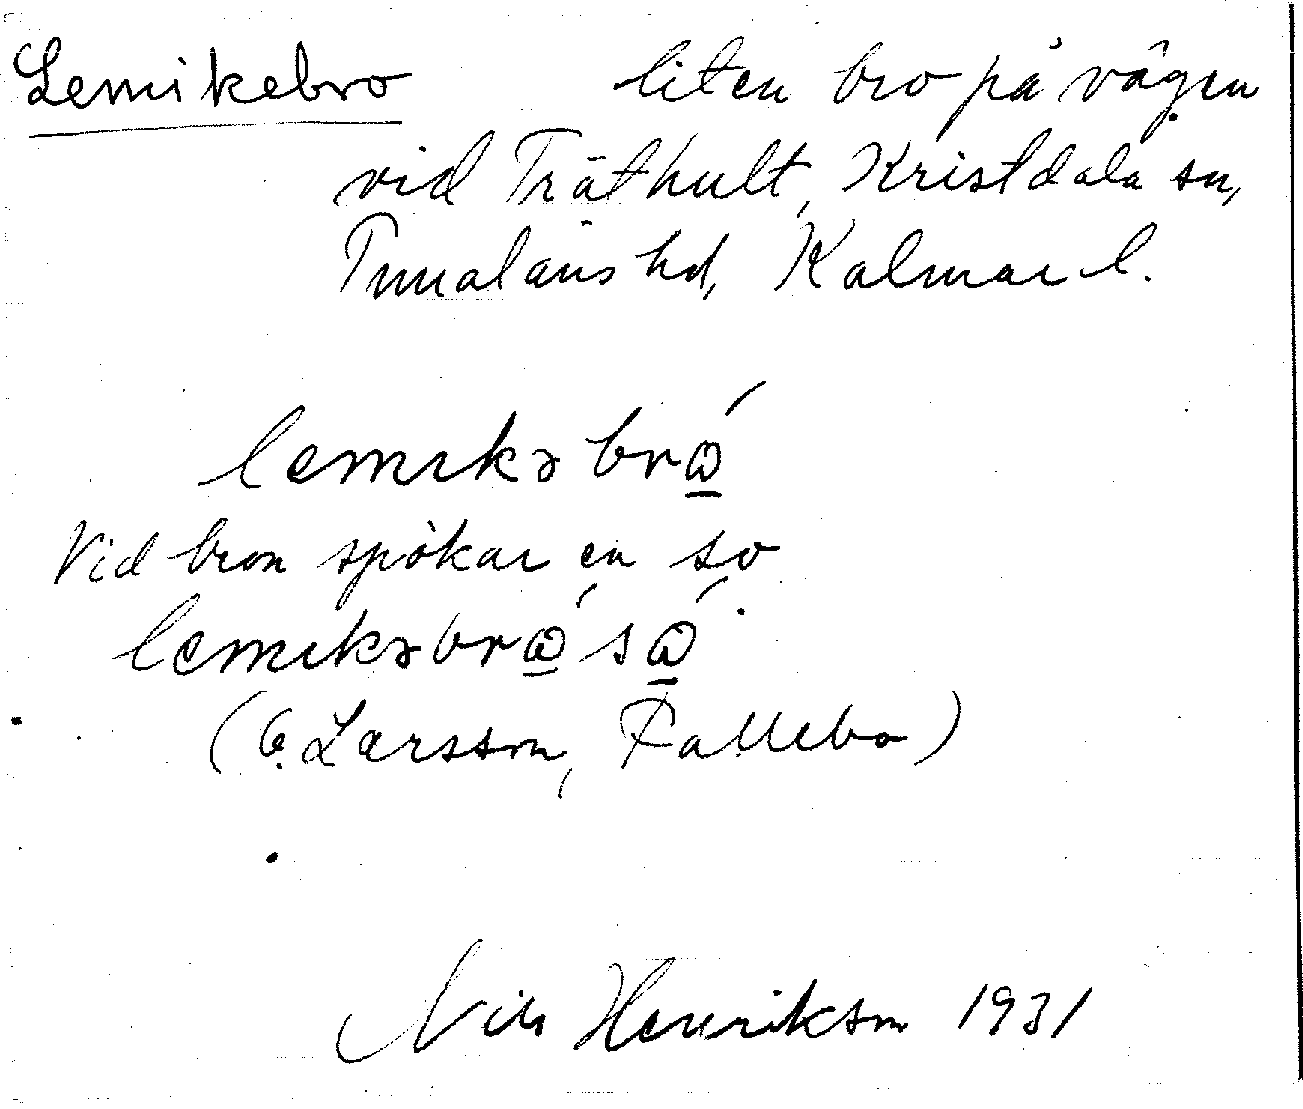 Lemikebro liten bro på vägen
vid Träthult, Kristdala sn,
Tunaläns hd, Kalmar l.
lemikəbrώ̲
Vid bron spökar en so
lemikəbrώ̲sώ̲
(C. Larsson, Fallebo)
Nils Henrikson 1931